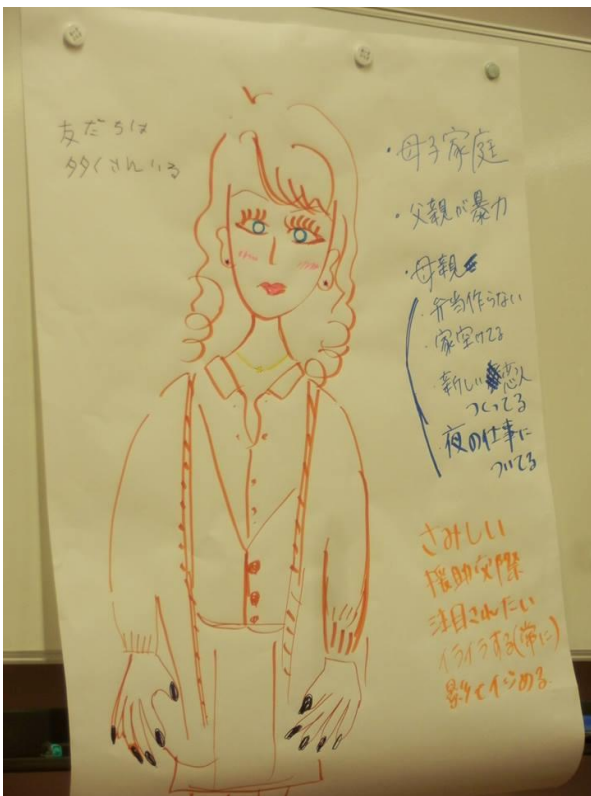 友だちは
多くさんいる
・母子家庭
・父親が暴力
・母親
・弁当作らない
・家空けてる
・新しい恋人
つくってる
・夜の仕事に
ついてる
さみしい
援助交際
注目されたい
イライラする(常に)
影でイジめる